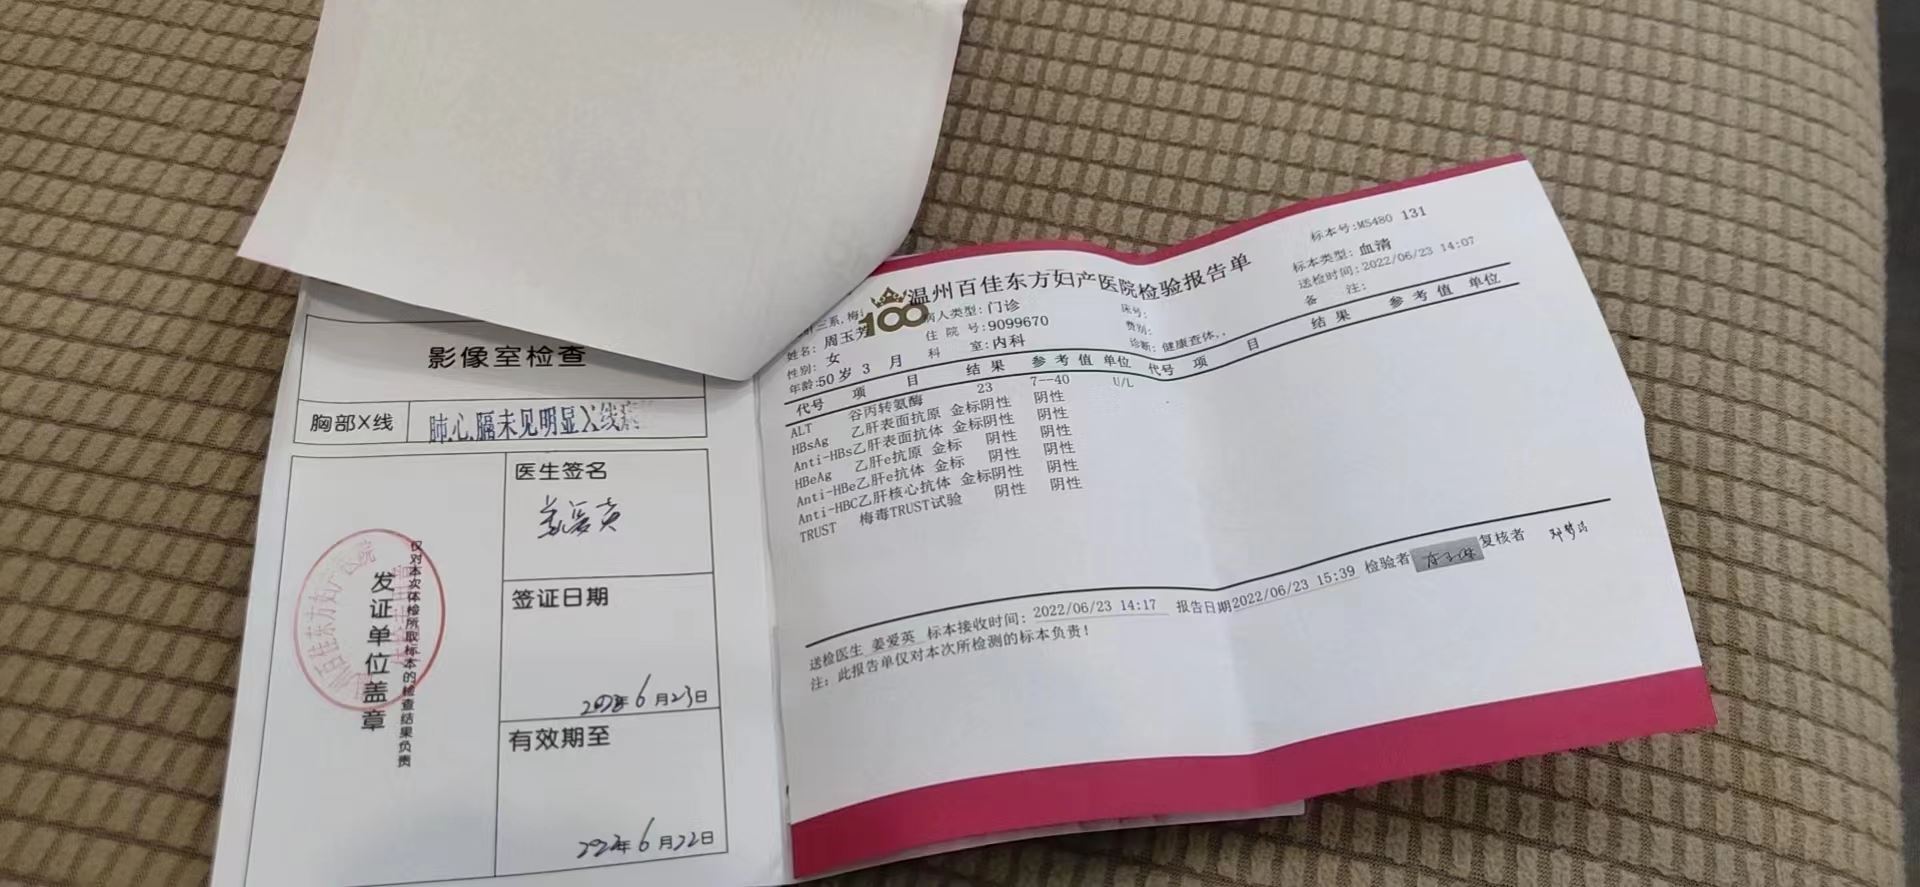 影像室检查
胸部X线 肺心膈未见明显X线
医生签名
签证日期
6月23日
有效期至
6月22日
发证单位盖章
仅对本次体检所取标本的检查结果负责
100
温州百佳东方妇产医院检验报告单
标本号:MS480 131
标本类型: 血清
送检时间:2022/06/23 14:07
备 注:
三系,梅
姓名: 周玉芳 病人类型: 门诊 床号:
性别: 女 住 院 号:9099670 费别:
年龄:50岁 3 月 科 室:内科 诊断: 健康查体,.
代号 项 目 结 果 参 考 值 单位 代号 项 目 结 果 参 考 值 单位
ALT 谷丙转氨酶 23 7--40 U/L
HBsAg 乙肝表面抗原 金标阴性 阴性
Anti-HBs乙肝表面抗体 金标阴性 阴性
HBeAg 乙肝e抗原 金标 阴性 阴性
Anti-HBe乙肝e抗体 金标 阴性 阴性
Anti-HBC乙肝核心抗体 金标阴性 阴性
TRUST 梅毒TRUST试验 阴性 阴性
送检医生 姜爱英 标本接收时间: 2022/06/23 14:17 报告日期2022/06/23 15:39 检验者 复核者
注: 此报告单仅对本次所检测的标本负责!